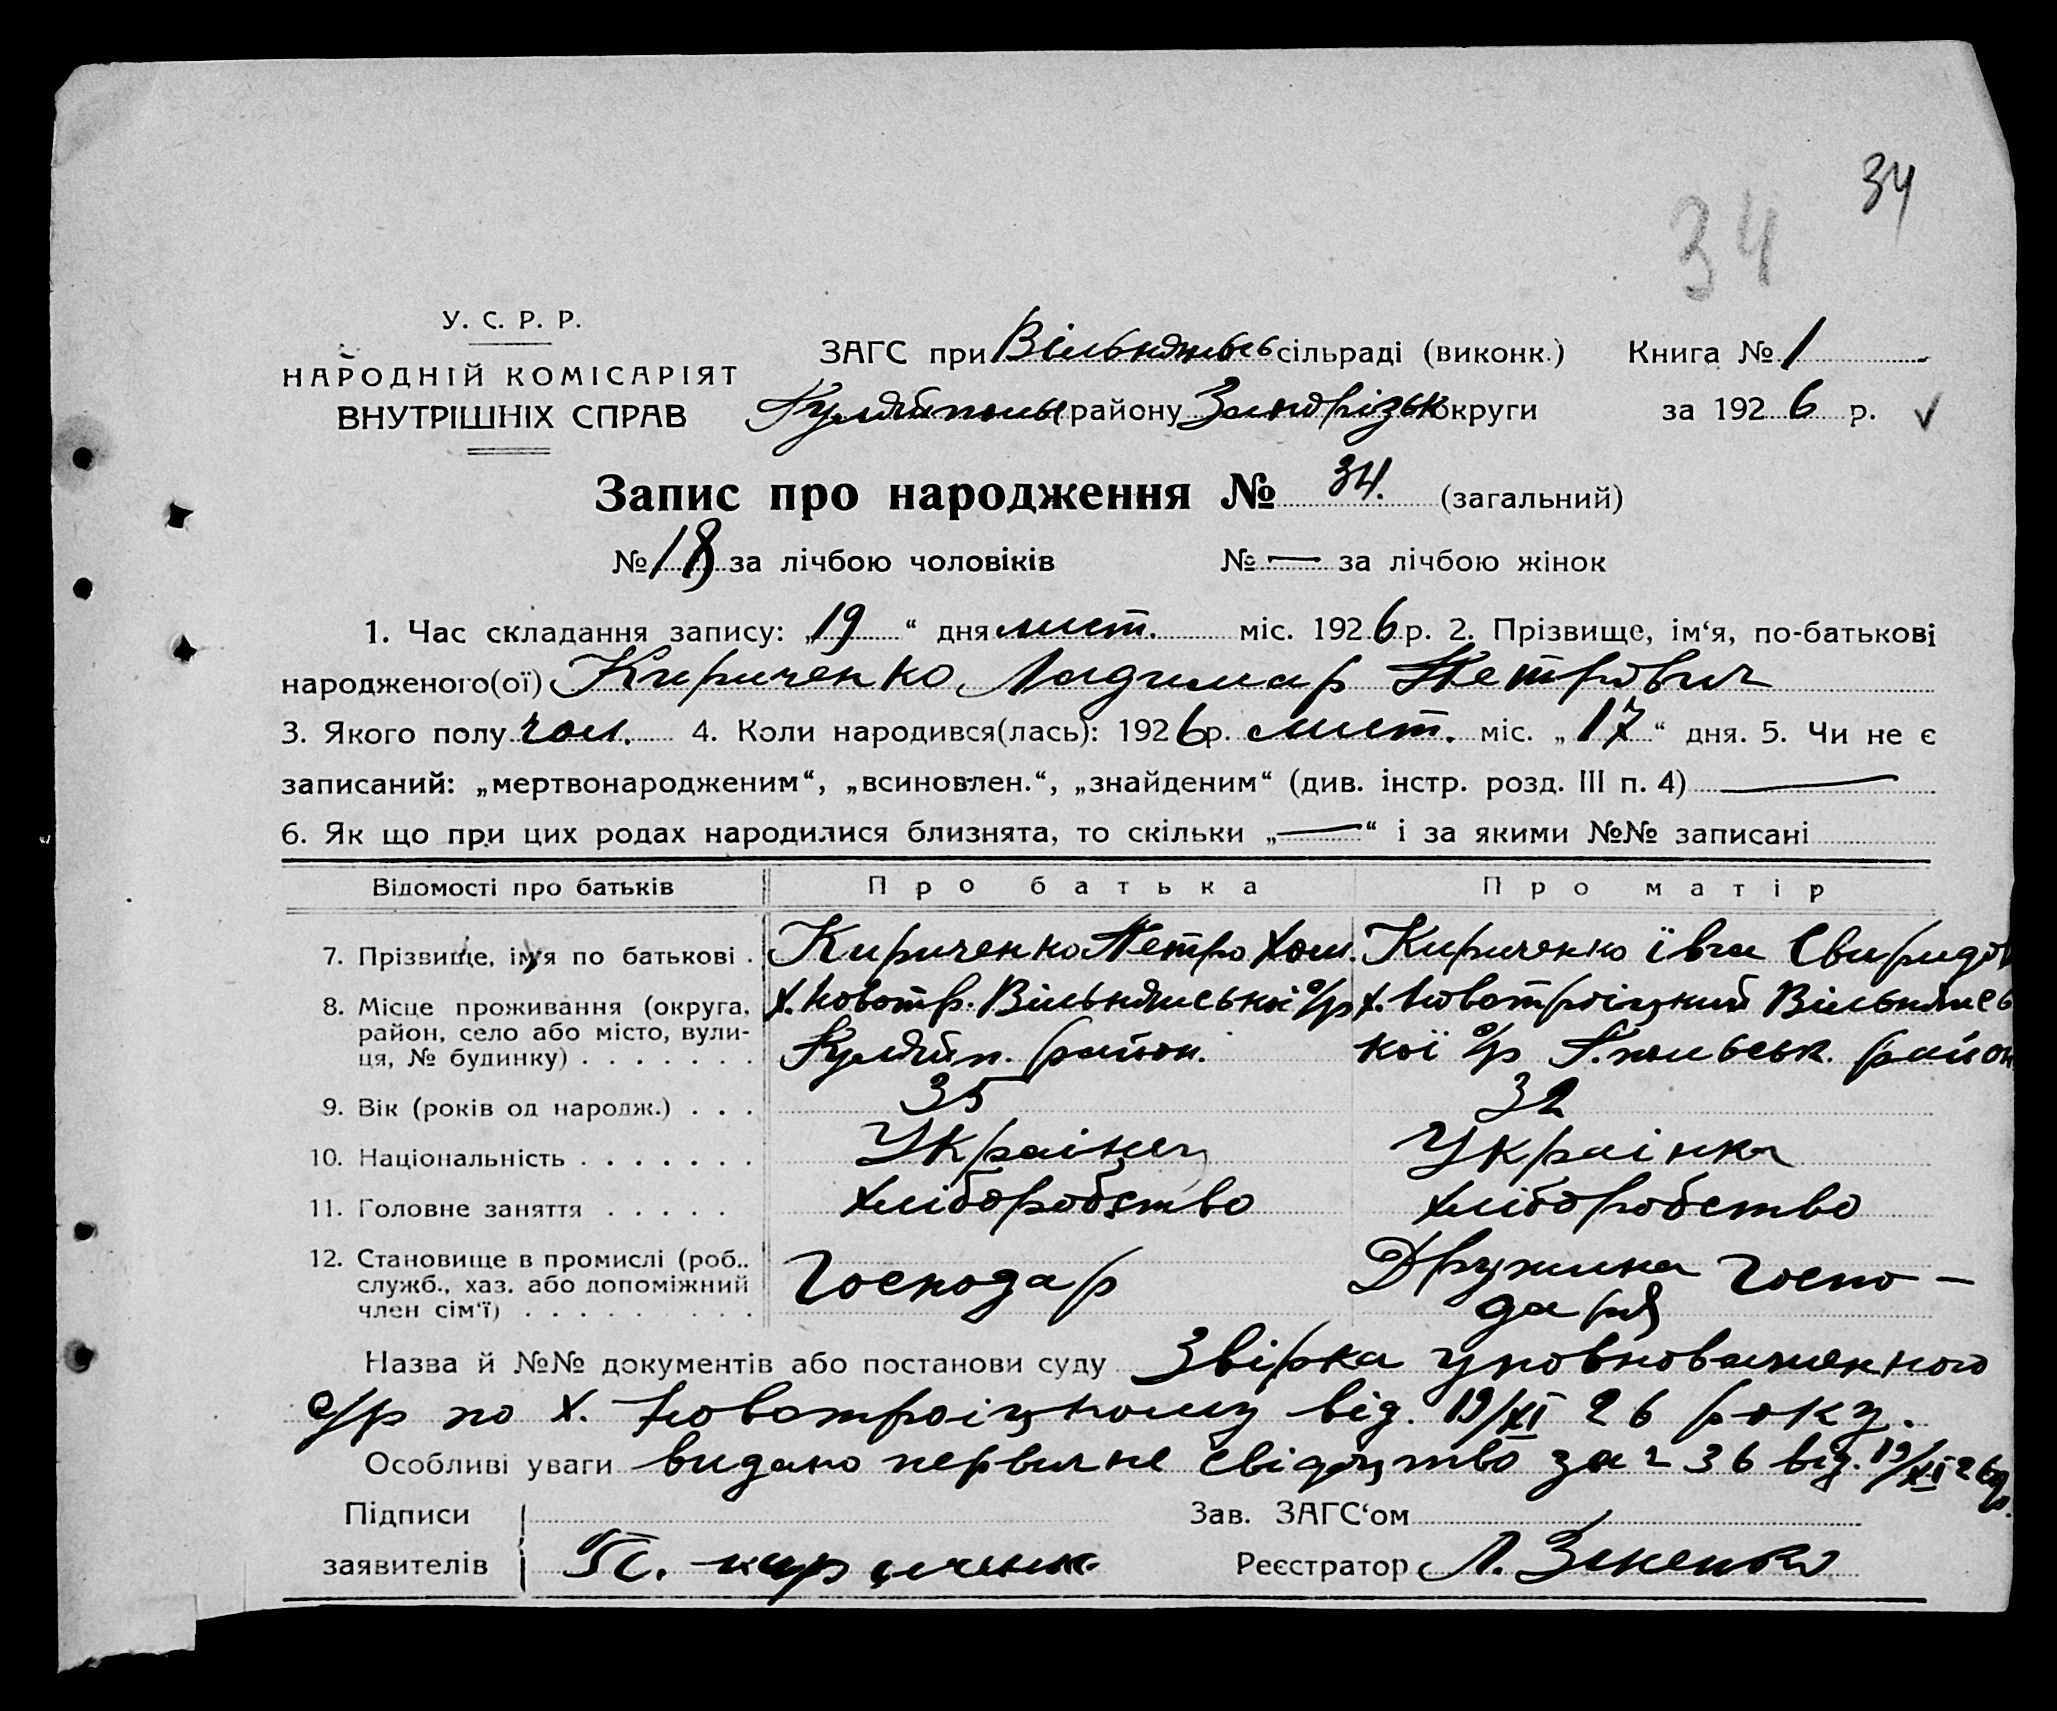 34
34
У. С. Р. Р.
НАРОДНІЙ КОМІСАРІЯТ
ВНУТРІШНІХ СПРАВ
ЗАГС при сільраді (виконк.) Книга № 1
Гуляйпольс району Запорізьк округи за 1926 р. ✓
Запис про народження № 34. (загальний)
№ 18 за лічбою чоловіків № — за лічбою жінок
1. Час складання запису: „19“ дня лист. міс. 1926 р. 2. Прізвище, ім‘я, по-батькові
народженого(ої) Кириченко Ладимар Петрович
3. Якого полу чол. 4. Коли народився(лась): 1926 р. лист. міс. „17“ дня. 5. Чи не є
записаний: „мертвонародженим“, „всиновлен.“, „знайденим“ (див. інстр. розд. III п. 4) —
6. Як що при цих родах народилися близнята, то скільки „—“ і за якими №№ записані
Відомості про батьків Про батька Про матір
7. Прізвище, імʼя по батькові . Кириченко Петро Хом. Кириченко Ївга Свиридов
8. Місце проживання (округа, район, село або місто, вулиця, № будинку) . . . . . . . х. Новотр. с/р Гуляйп. район. х. Новотроіцкий кої с/р Г.польськ. район
9. Вік (років од народж.) . . . 35 32
10. Національність . . . . . . . Украінец Украінка
11. Головне заняття . . . . . хліборобство хліборобство
12. Становище в промислі (роб., служб., хаз. або допоміжний член сім‘ї) . . . . . . . . . Господар Дружина госпо-
даря
Назва й №№ документів або постанови суду Звірка уповноваженного
с/р по х. Новотроіцкому від. 19/XI 26 року.
Особливі уваги видано первичне свідоцтво за ч 36 від. 19/XI 26 р.
Підписи Зав. ЗАГС‘ом
заявителів П. Реєстратор Л.